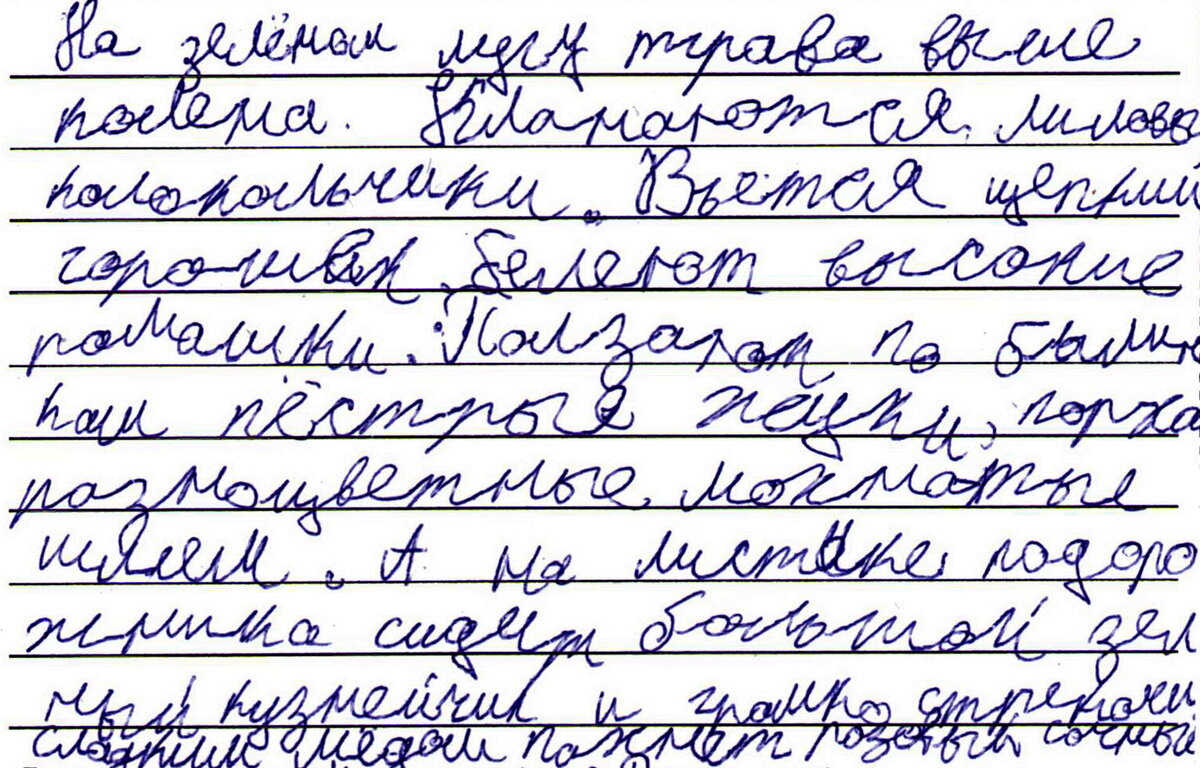 На зелёном лугу трава выше
колена. Кланаются лилове
колокольчики. Вьется щепкий
горошек, белеют высокие
ромашки. Ползают по былин
кам пёстрые жучки, порха
разноцветные мохматые
шмлем. А на листике подоро
жника сидит большой зел
ный кузнейчик и громко стрекочи
сладким медом пахнет розовый сочный